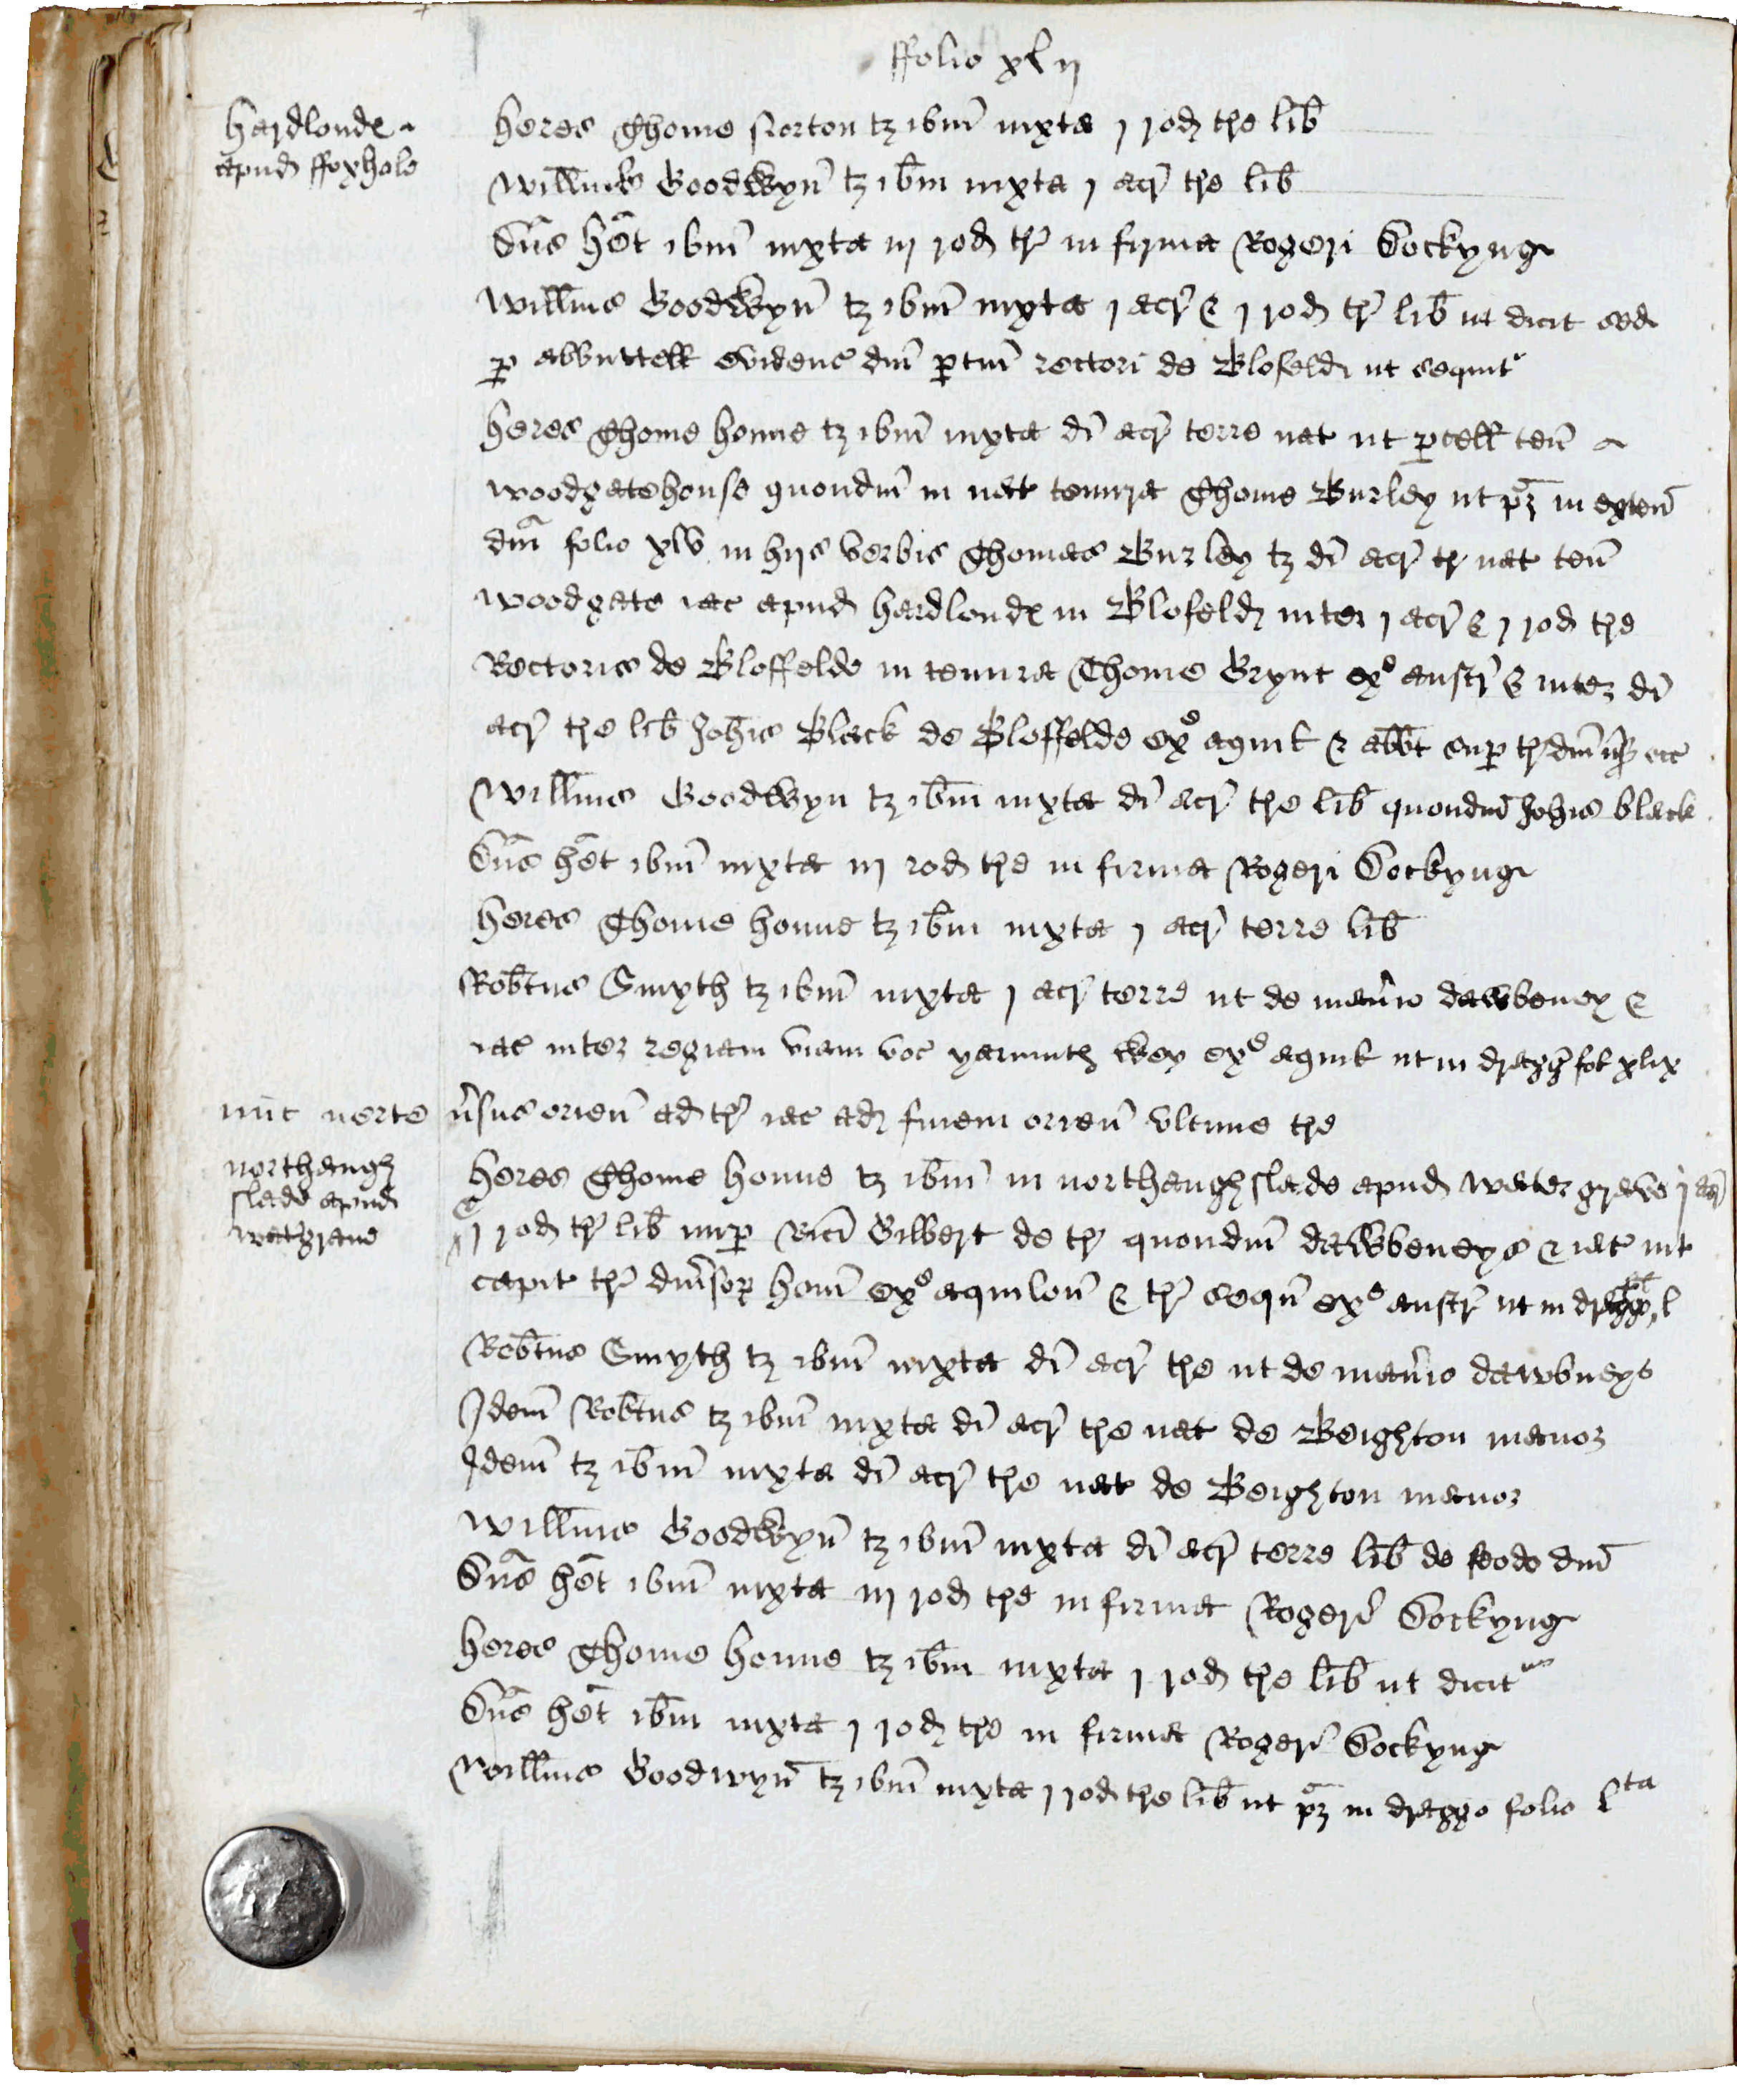 ffolio xlij
hardlonde
apud ffoxhole
heres Thome Norton tz ibm iuxta j rod tre lib
Willmus Goodwyn tz ibm iuxta j acr tre lib
Dns het ibm iuxta iij rod tr in firma Rogeri Dockyng
Willms Goodwyn tz ibm iuxta j acr & j rod tr lib ut dicit sed
p abbuttell evidenc dni ptin rectori de Blofeld ut sequit
heres Thome honne tz ibm iuxta di acr terre nat ut pcell ten
woodgatehouse quondm in nat tenura Thome Burley ut pz in exten
dni folio xlv in hijs verbis Thomas Burley tz di acr tr nat ten
woodgate iac apud hardlonde in Blofeld inter j acr & j rod tre
Rectoris de Bloffelde in tenura Thome Brynt ex austr & inter di
acr tre lib Johis Black de Bloffelde ex aquil & abbt sup tr dni etc
Willms Goodwyn tz ibm iuxta di acr tre lib quondm Johis black
Dns het ibm iuxta iij rod tre in firma Rogeri Dockyng
heres Thome honne tz ibm iuxta j acr terre lib
Robtus Smyth tz ibm iuxta j acr terre ut de man'io dawbeney &
iac inter regiam viam voc yarmuth wey ex aquil ut in dragg fol xlix
nuc verte v'sus orien ad tr iac ad finem orien ultime tre
northaugh
slade apud
wat'grave
heres Thome honne tz ibm in northaughslade apud watergrave j acr
& j rod tr lib nup Rici Gilbert de tr quondm dawbeneys & iac int
capit tr diu'sor hom ex aquilon & tr sequn ex austr ut in l
Robtus Smyth tz ibm iuxta di acr tre ut de man'io dawbneys
Idem Robtus tz ibm iuxta di acr tre nat de Beighton manor
Idem tz ibm iuxta di acr tre nat de Beighton manor
Willms Goodwyn tz ibm iuxta di acr terre lib de feodo dni
Dns het ibm iuxta iij rod tre in firma Rogeri Dockyng
heres Thome honne tz ibm iuxta j rod tre lib ut dicit
Dns het ibm iuxta j rod tre in firma Rogeri Dockyng
Willms Goodwyn tz ibm iuxta j rod tre lib ut pz in draggo folio l ta